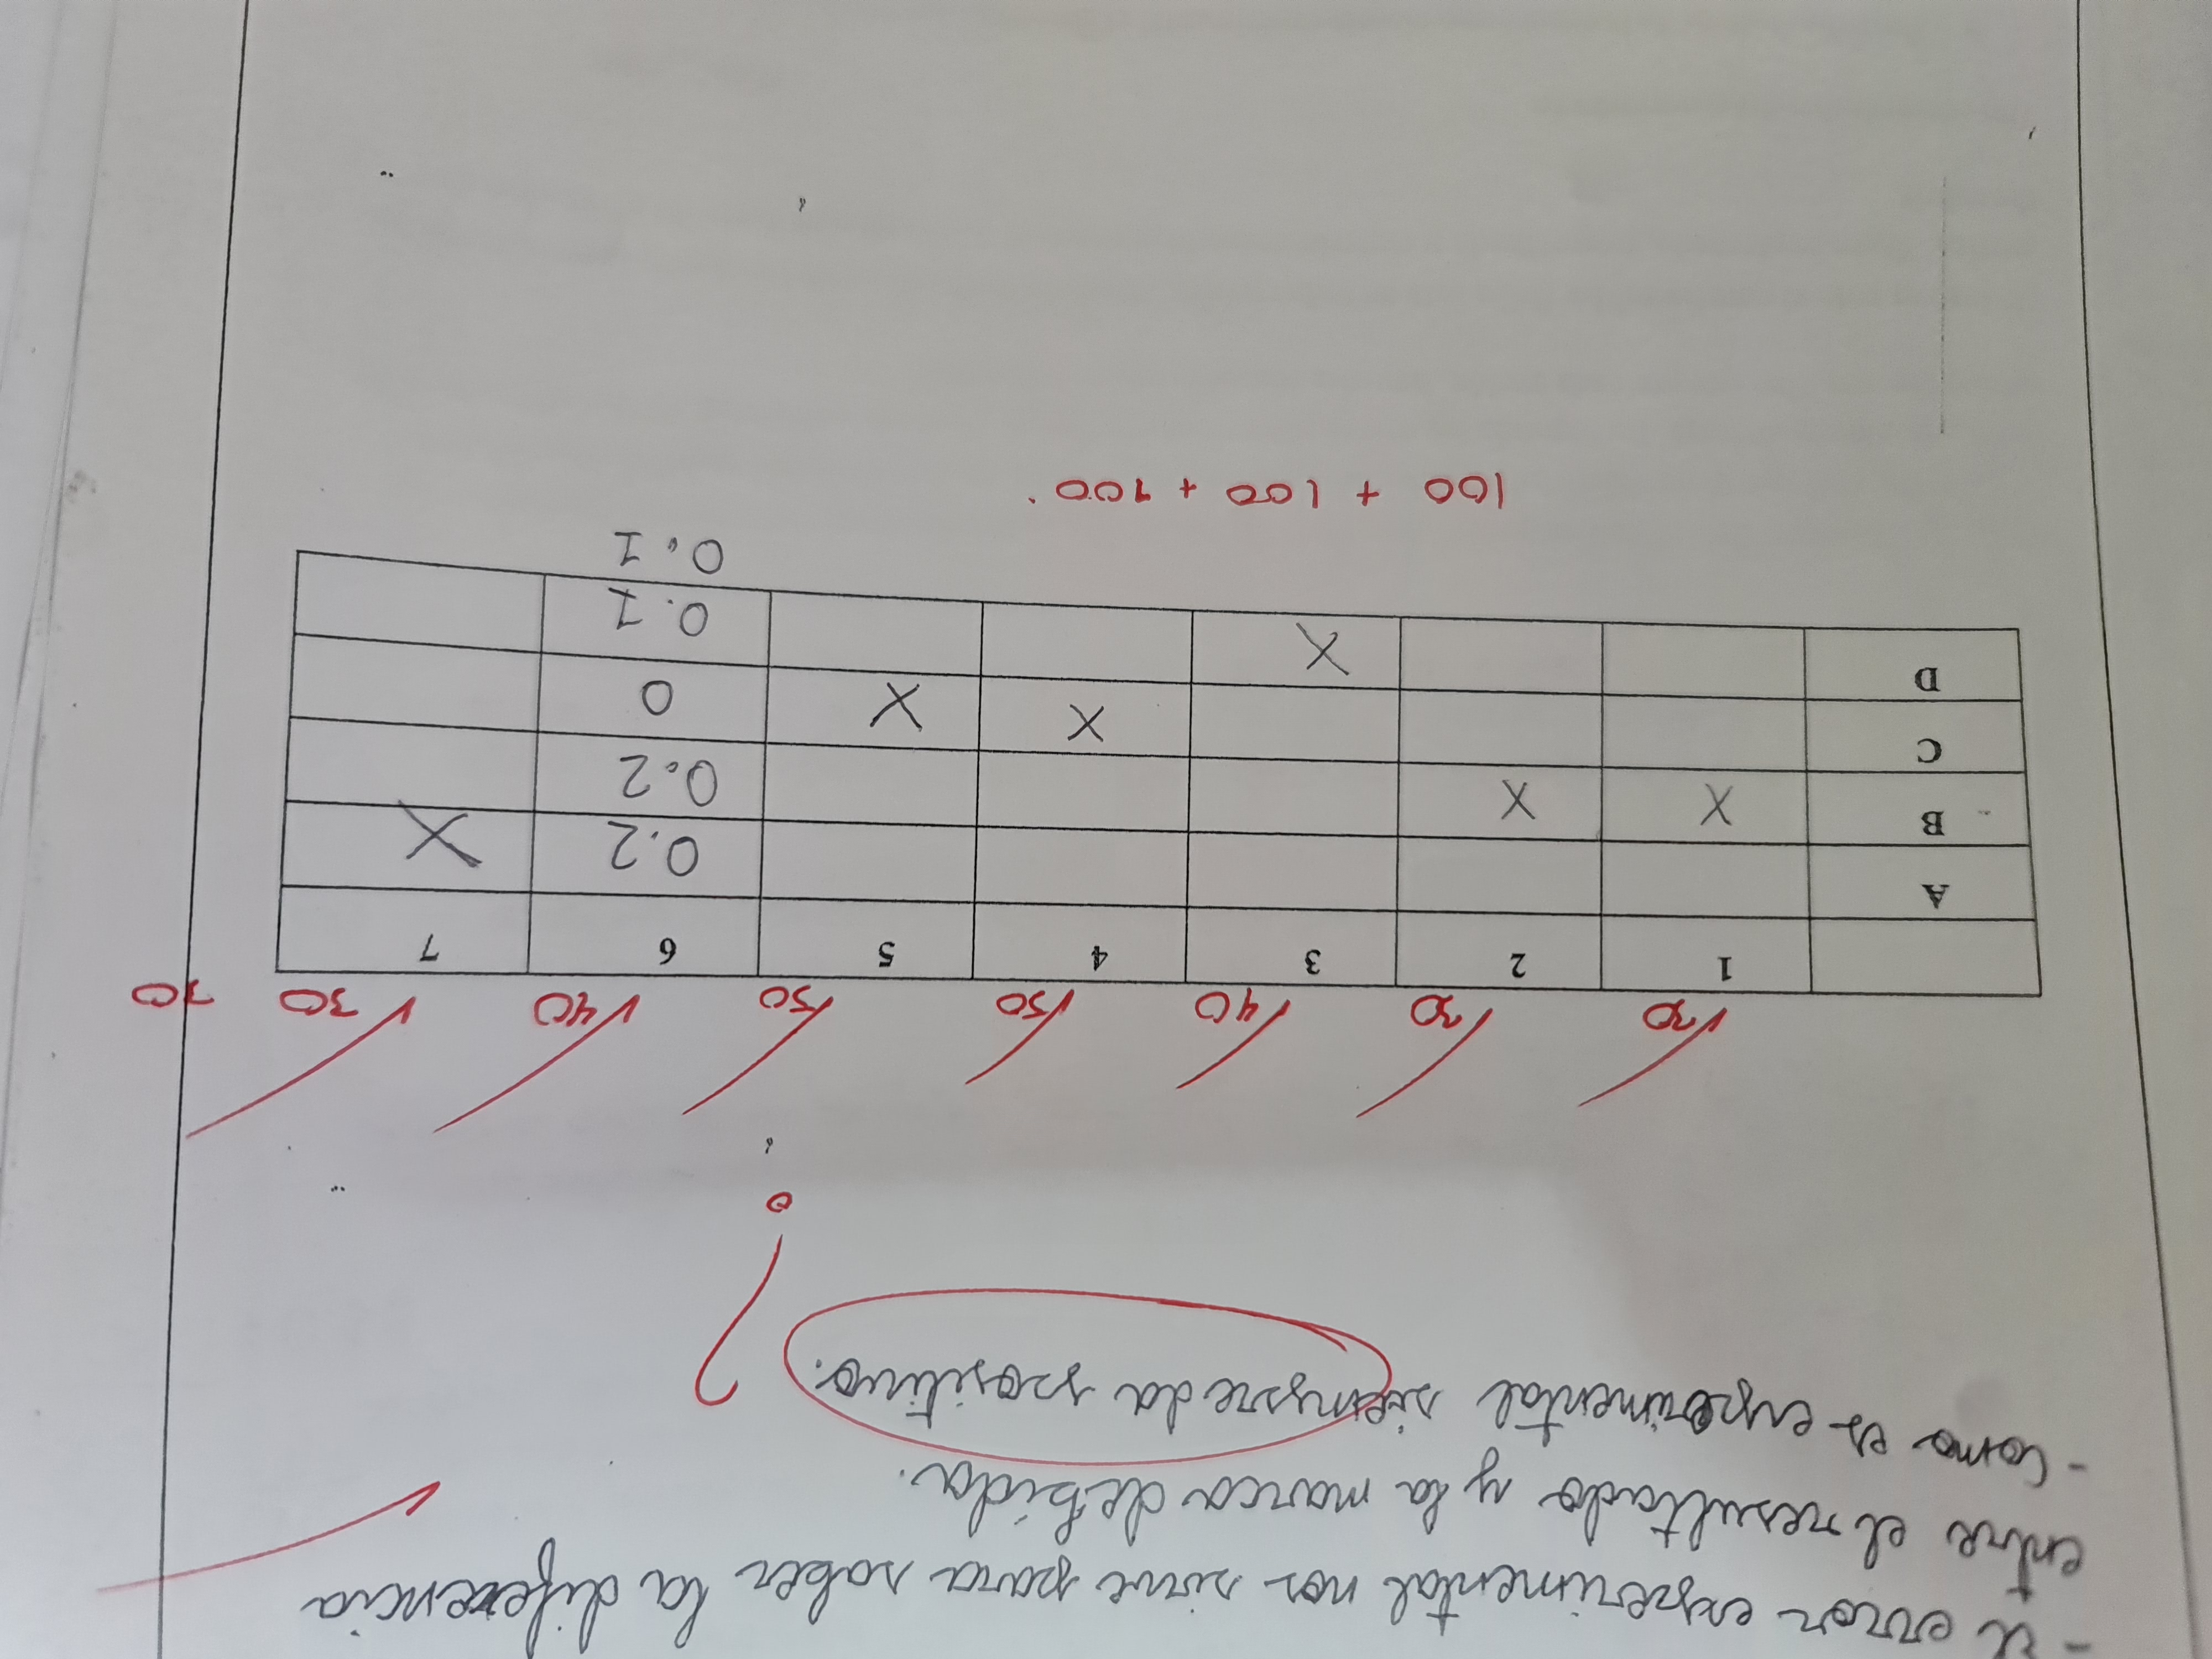 - El error experimental nos sirve para saber la diferencia
entre el resultado y la marca debida.
- Como es experimental siempre da positivo. ?
✓30 ✓30 ✓40 ✓50 ✓50 ✓40 ✓30 30
1 2 3 4 5 6 7
A 0.2 X
B X X 0.2
C X X 0
D X 0.1
0.1
100 + 100 + 100.